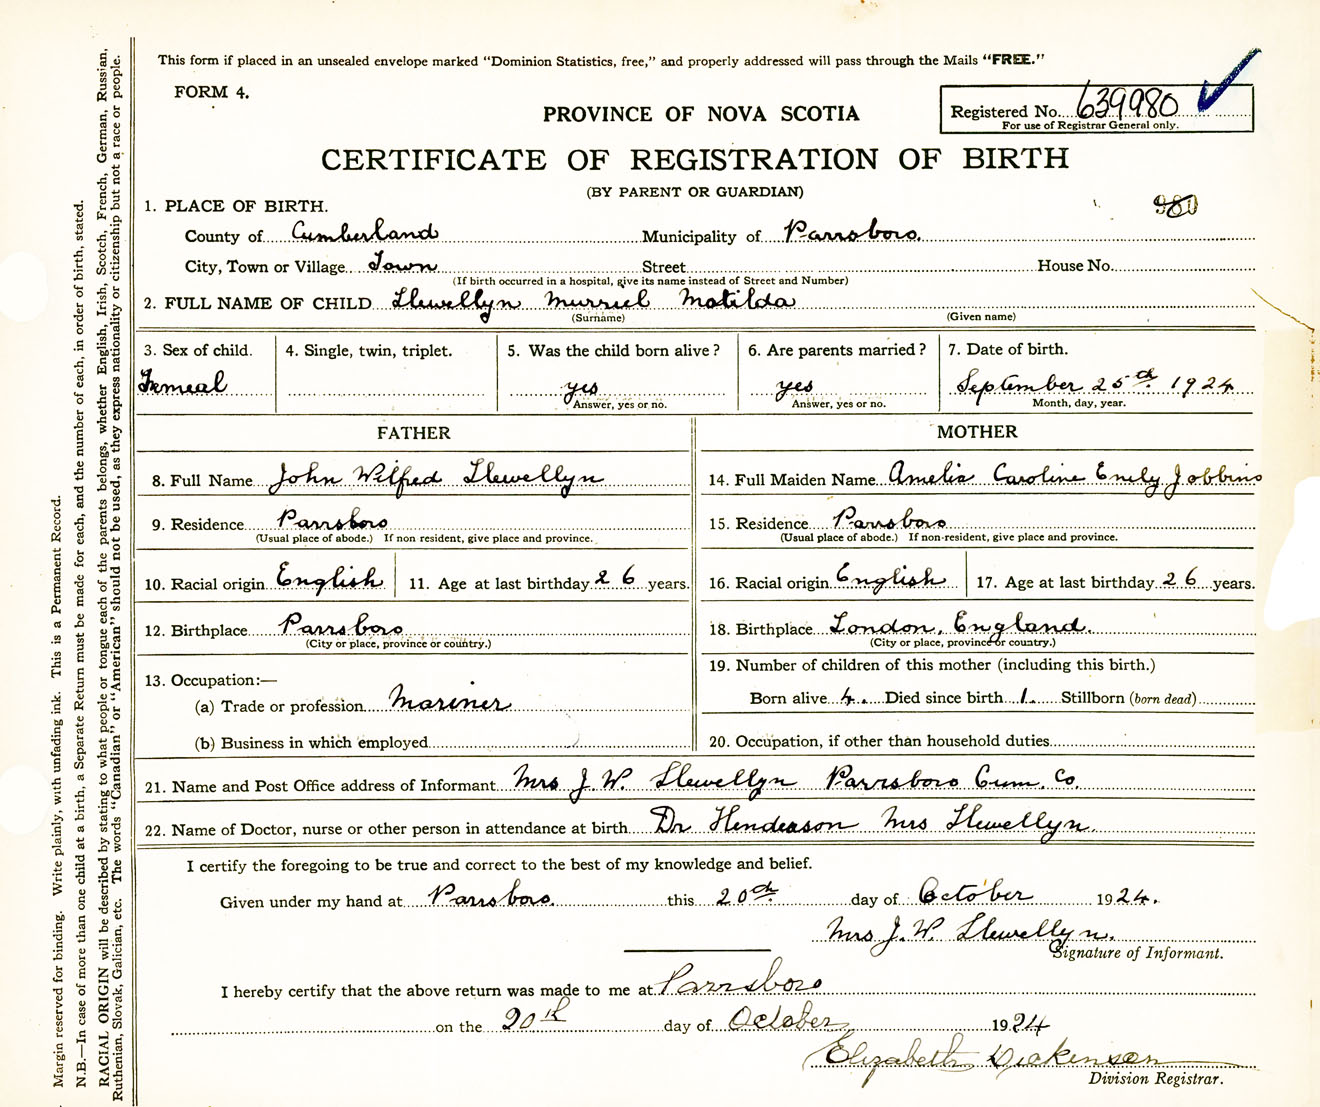 This form if placed in an unsealed envelope marked "Dominion Statistics, free," and properly addressed will pass through the Mails "FREE."
FORM 4.
PROVINCE OF NOVA SCOTIA
Registered No. 639980
For use of Registrar General only.
CERTIFICATE OF REGISTRATION OF BIRTH
(BY PARENT OR GUARDIAN)
980
1. PLACE OF BIRTH.
County of Cumberland Municipality of Parrsboro.
City, Town or Village Town Street House No.
(If birth occurred in a hospital, give its name instead of Street and Number)
2. FULL NAME OF CHILD Llewellyn Murriel Matilda
(Surname) (Given name)
3. Sex of child. 4. Single, twin, triplet. 5. Was the child born alive? 6. Are parents married? 7. Date of birth.
Femeal yes yes September 25th 1924
Answer, yes or no. Answer, yes or no. Month, day, year.
FATHER MOTHER
8. Full Name John Wilfred Llewellyn 14. Full Maiden Name Amelia Caroline Emily Jobbins
9. Residence Parrsboro 15. Residence Parrsboro
(Usual place of abode.) If non resident, give place and province. (Usual place of abode.) If non-resident, give place and province.
10. Racial origin English 11. Age at last birthday 26 years. 16. Racial origin English 17. Age at last birthday 26 years.
12. Birthplace Parrsboro 18. Birthplace London, England.
(City or place, province or country.) (City or place, province or country.)
13. Occupation:— 19. Number of children of this mother (including this birth.)
(a) Trade or profession Mariner Born alive 4. Died since birth 1. Stillborn (born dead)
(b) Business in which employed 20. Occupation, if other than household duties
21. Name and Post Office address of Informant Mrs J. W. Llewellyn Parrsboro Cum. Co.
22. Name of Doctor, nurse or other person in attendance at birth Dr Henderson Mrs Llewellyn.
I certify the foregoing to be true and correct to the best of my knowledge and belief.
Given under my hand at Parrsboro. this 20th day of October 1924.
Mrs J. W. Llewellyn.
Signature of Informant.
I hereby certify that the above return was made to me at Parrsboro
on the 20th day of October 1924
Elizabeth Dickenson
Division Registrar.
Margin reserved for binding. Write plainly, with unfading ink. This is a Permanent Record.
N.B.—In case of more than one child at a birth, a Separate Return must be made for each, and the number of each, in order of birth, stated.
RACIAL ORIGIN will be described by stating to what people or tongue each of the parents belongs, whether English, Irish, Scotch, French, German, Russian,
Ruthenian, Slovak, Galician, etc. The words "Canadian" or "American" should not be used, as they express nationality or citizenship but not a race or people.